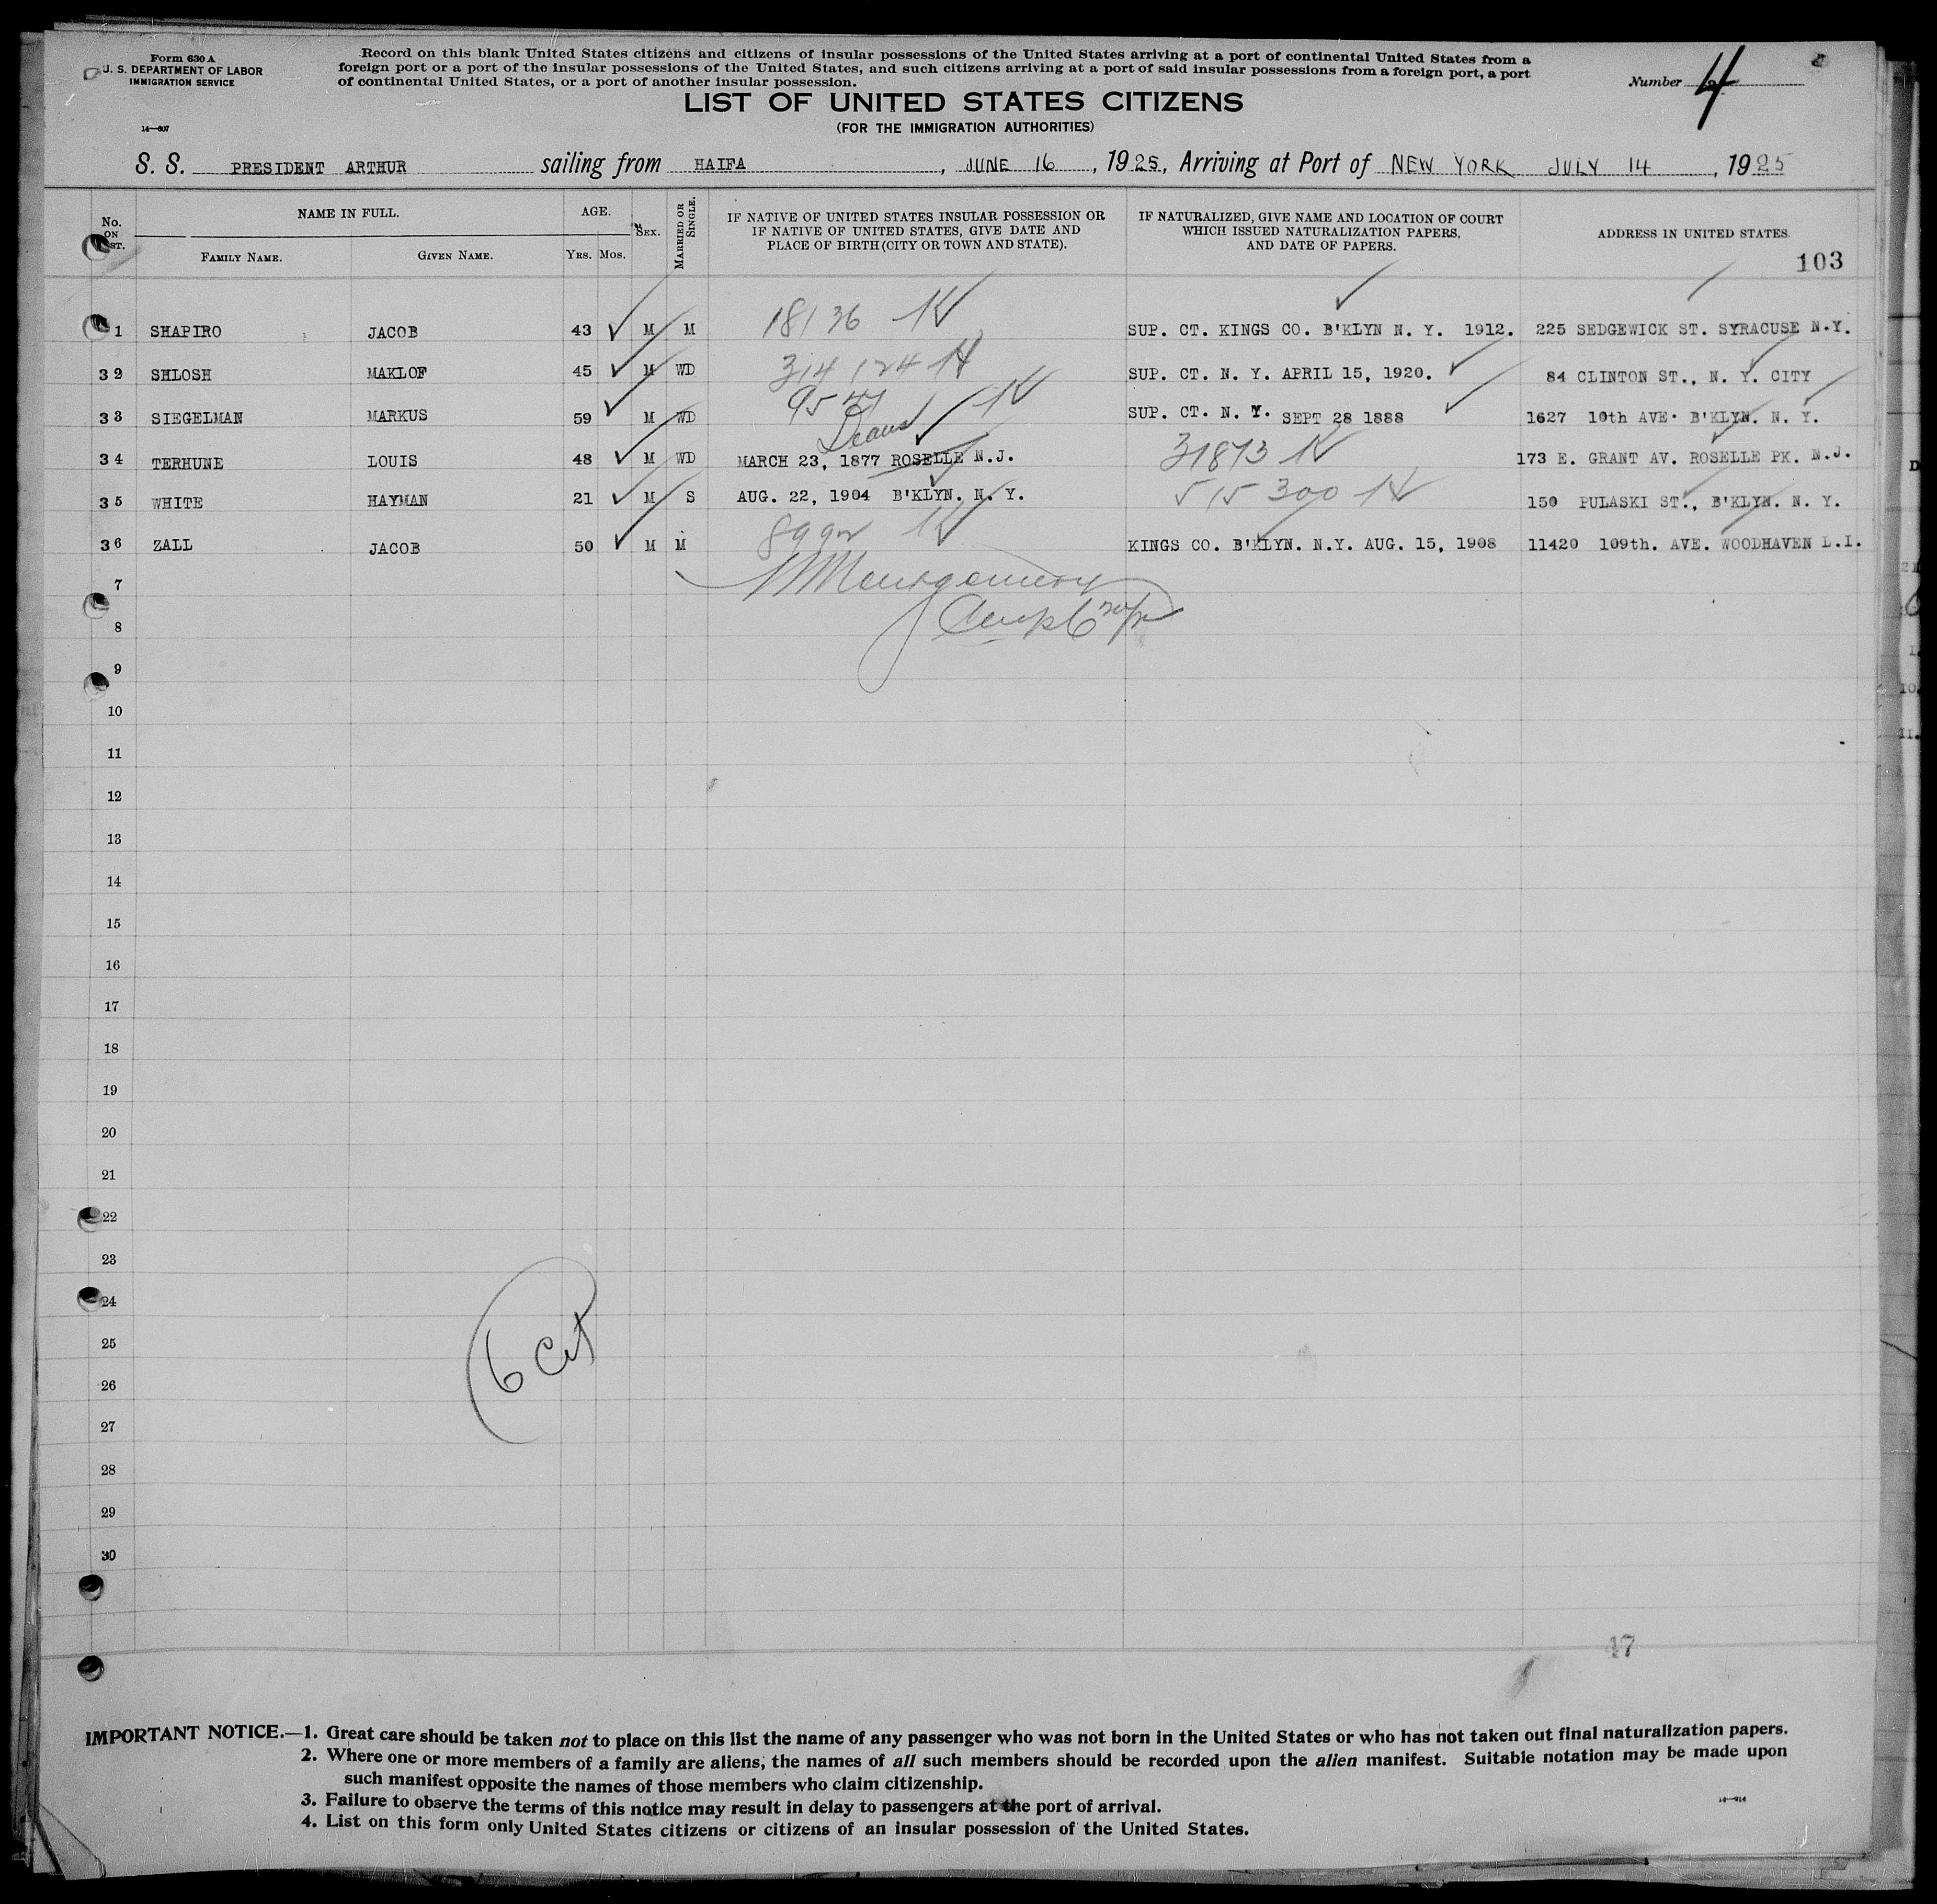 Form 630 A
U. S. DEPARTMENT OF LABOR
IMMIGRATION SERVICE
14—807
Record on this blank United States citizens and citizens of insular possessions of the United States arriving at a port of continental United States from a
foreign port or a port of the insular possessions of the United States, and such citizens arriving at a port of said insular possessions from a foreign port, a port
of continental United States, or a port of another insular possession.
Number 4
LIST OF UNITED STATES CITIZENS
(FOR THE IMMIGRATION AUTHORITIES)
S. S. PRESIDENT ARTHUR sailing from HAIFA, JUNE 16, 1925, Arriving at Port of NEW YORK JULY 14, 1925
No. ON LIST. NAME IN FULL. FAMILY NAME. GIVEN NAME. AGE. YRS. MOS. SEX. MARRIED OR SINGLE.
IF NATIVE OF UNITED STATES INSULAR POSSESSION OR
IF NATIVE OF UNITED STATES, GIVE DATE AND
PLACE OF BIRTH (CITY OR TOWN AND STATE).
IF NATURALIZED, GIVE NAME AND LOCATION OF COURT
WHICH ISSUED NATURALIZATION PAPERS,
AND DATE OF PAPERS.
ADDRESS IN UNITED STATES.
103
1 SHAPIRO JACOB 43 M M 18136 SUP. CT. KINGS CO. B'KLYN N. Y. 1912. 225 SEDGEWICK ST. SYRACUSE N.Y.
32 SHLOSH MAKLOF 45 M WD 314124 SUP. CT. N. Y. APRIL 15, 1920. 84 CLINTON ST., N. Y. CITY
33 SIEGELMAN MARKUS 59 M WD SUP. CT. N. Y. SEPT 28 1888 1627 10th AVE. B'KLYN. N. Y.
34 TERHUNE LOUIS 48 M WD MARCH 23, 1877 ROSELLE N.J. 31873 173 E. GRANT AV. ROSELLE PK. N.J.
35 WHITE HAYMAN 21 M S AUG. 22, 1904 B'KLYN. N. Y. 515300 150 PULASKI ST., B'KLYN. N. Y.
36 ZALL JACOB 50 M M KINGS CO. B'KLYN. N.Y. AUG. 15, 1908 11420 109th. AVE. WOODHAVEN L.I.
7 Montgomery
8
9
10
11
12
13
14
15
16
17
18
19
20
21
22
23
24
25
26
27
28
29
30
6 cit
47
IMPORTANT NOTICE.—1. Great care should be taken not to place on this list the name of any passenger who was not born in the United States or who has not taken out final naturalization papers.
2. Where one or more members of a family are aliens, the names of all such members should be recorded upon the alien manifest. Suitable notation may be made upon
such manifest opposite the names of those members who claim citizenship.
3. Failure to observe the terms of this notice may result in delay to passengers at the port of arrival.
4. List on this form only United States citizens or citizens of an insular possession of the United States.